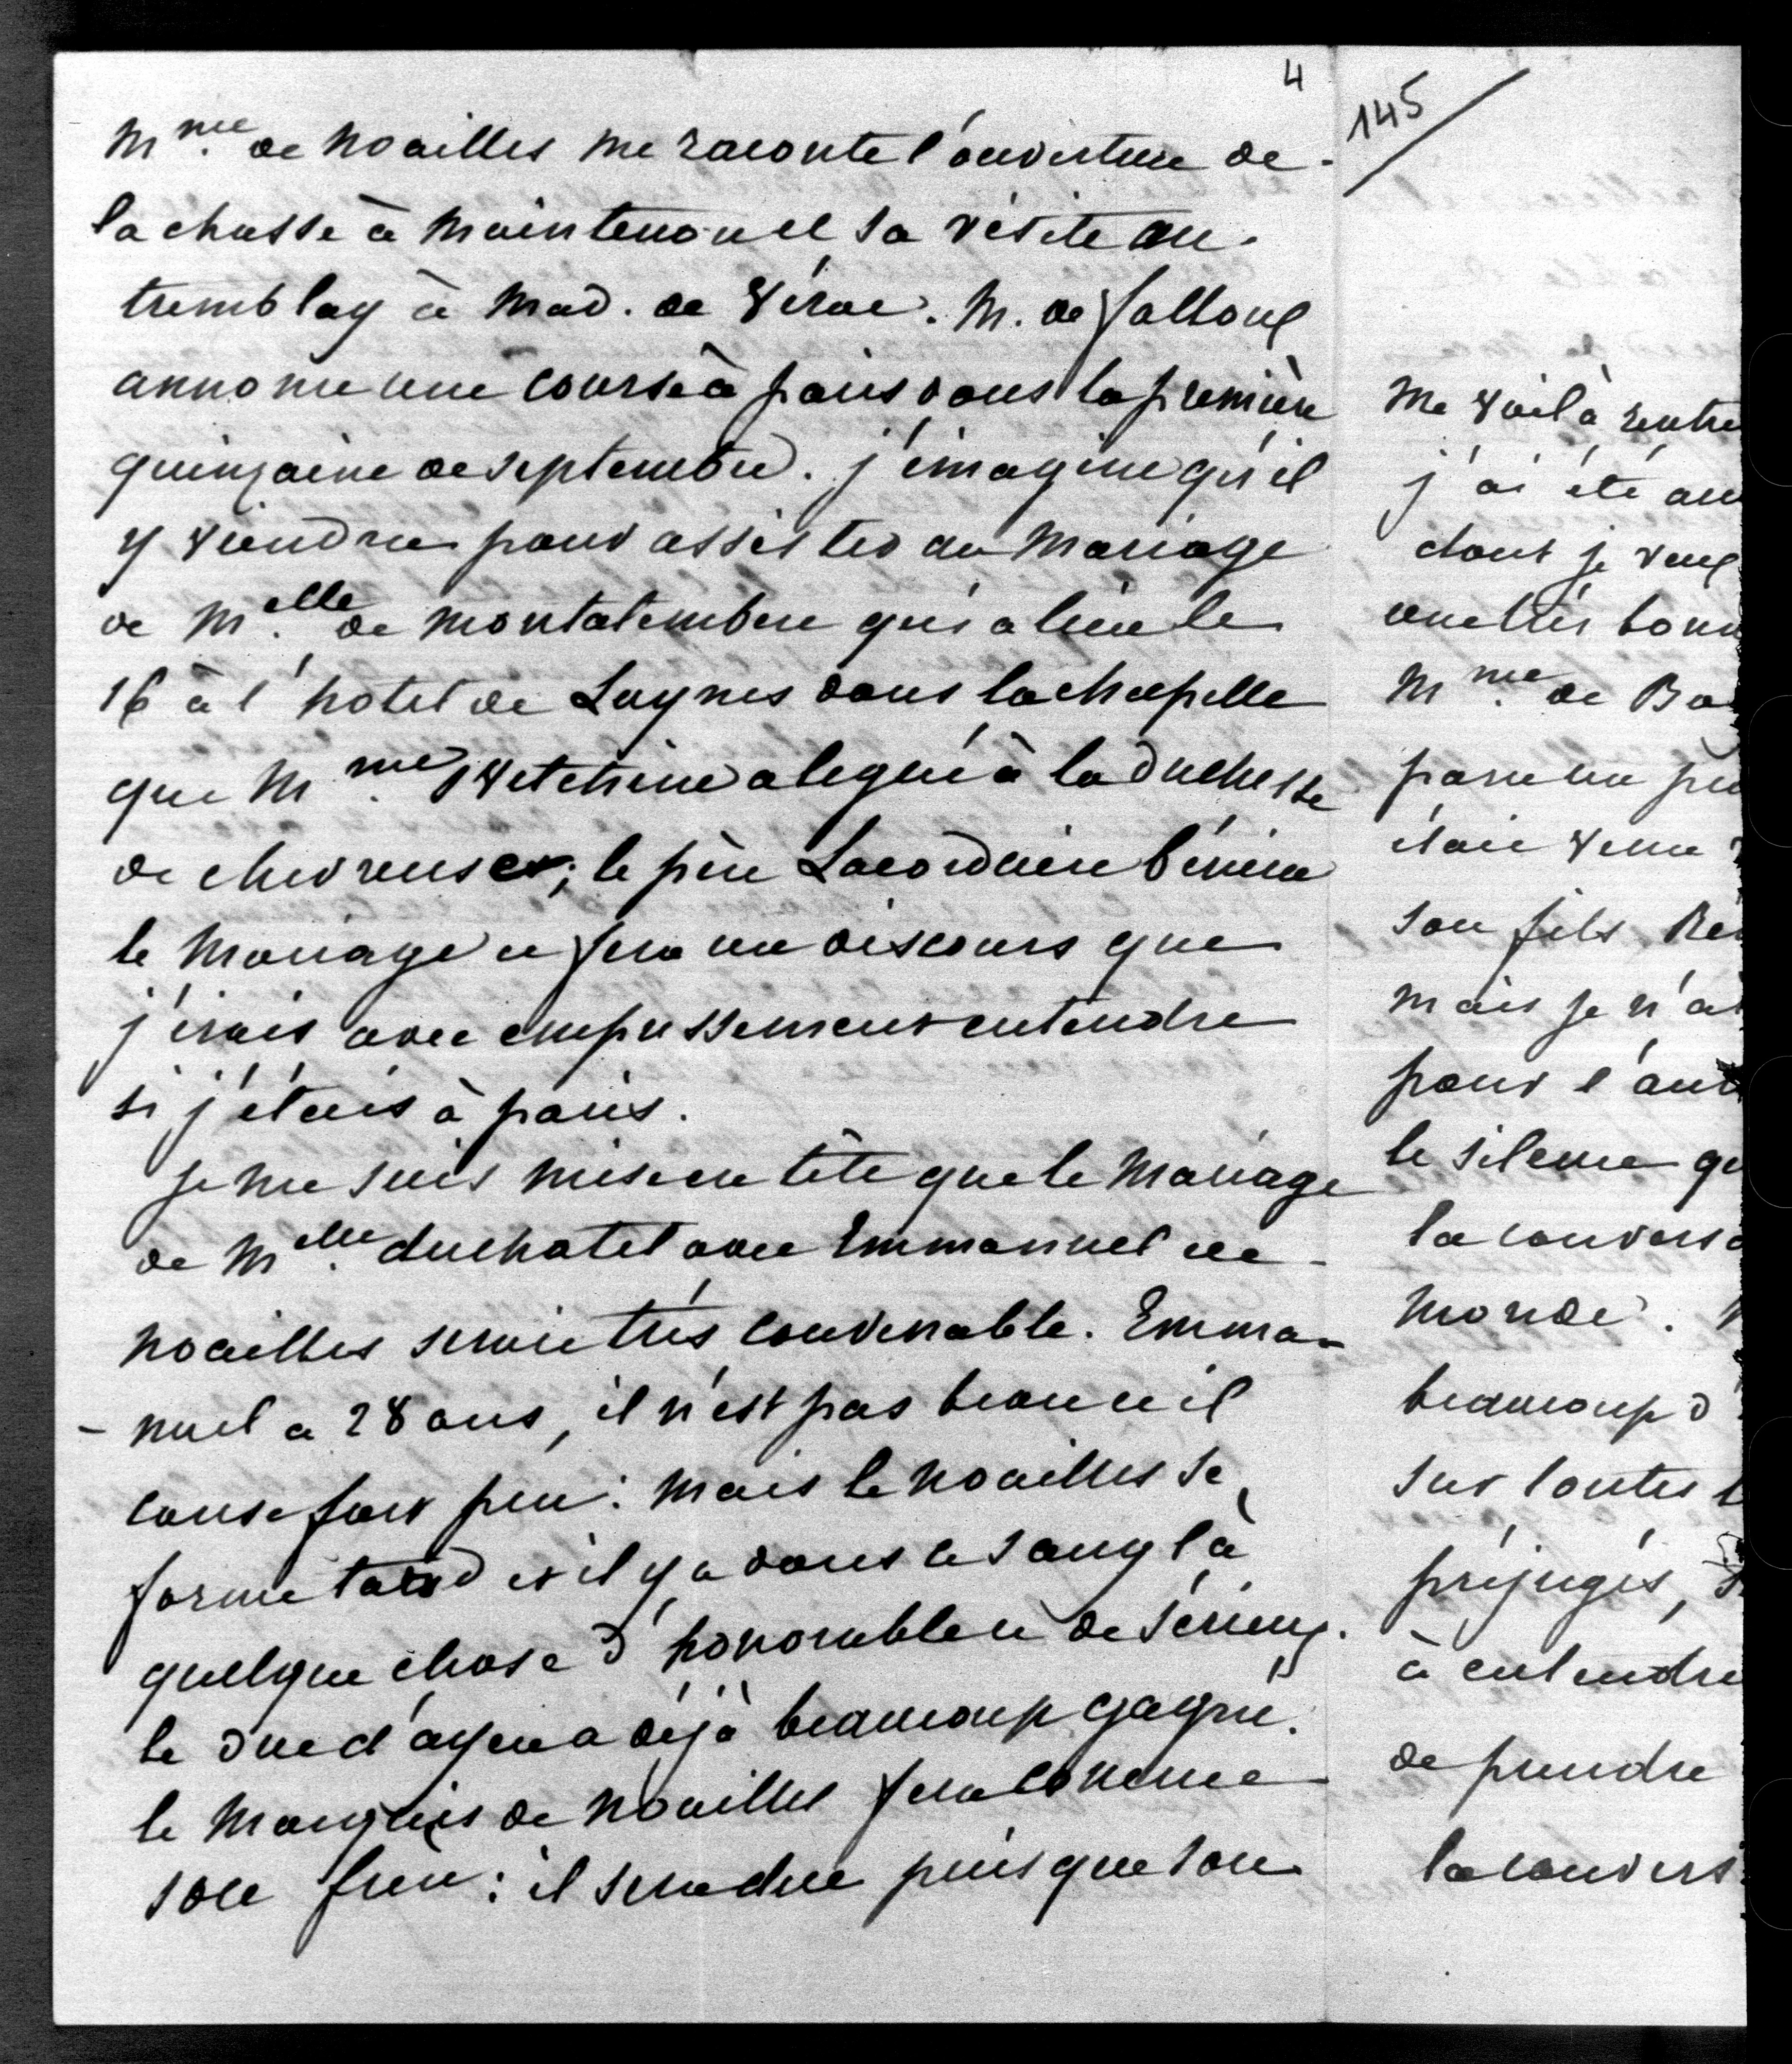 4
145
Mme. de Noailles me raconte l'ouverture de
la chasse à Maintenon et sa visite au
tremblay à Mad. de Vérac. M. de Falloux
annonce une course à paris dans la première
quinzaine de septembre. j'imagine qu'il
y viendra pour assister au Mariage
de Melle. de Montalembert qui a lieu le
16 à l'hotel de Luynes dans la chapelle
que Mme. Swetchine a légué à la Duchesse
de chevreuse; le père Lacordaire bénira
le Mariage et fera un discours que
j'irais avec empressement entendre
si j'étais à paris.
Je me suis mise en tête que le Mariage
de Melle. duchatel avec Emmanuel de
Noailles serait très convenable. Emma-
-nuel a 28 ans, il n'est pas beau et il
cause fort peu: Mais le Noailles se
forme tard et il y a dans ce sang là
quelque chose d'honorable et de sérieux.
le duc d'ayen a déjà beaucoup gagné.
le Marquis de Noailles fera comme
son frère: il sera duc puisque son
Me voilà rentré
j'ai été au
dont je veux
une très bonn
Mme. de Ba
paru un peu
était venue
son fils Re
mais je n'ai
pour l'aut
le silence qu
la convers
Monde.
beaucoup d
sur toutes l
préjugés,
à entendre
de prendre
la convers